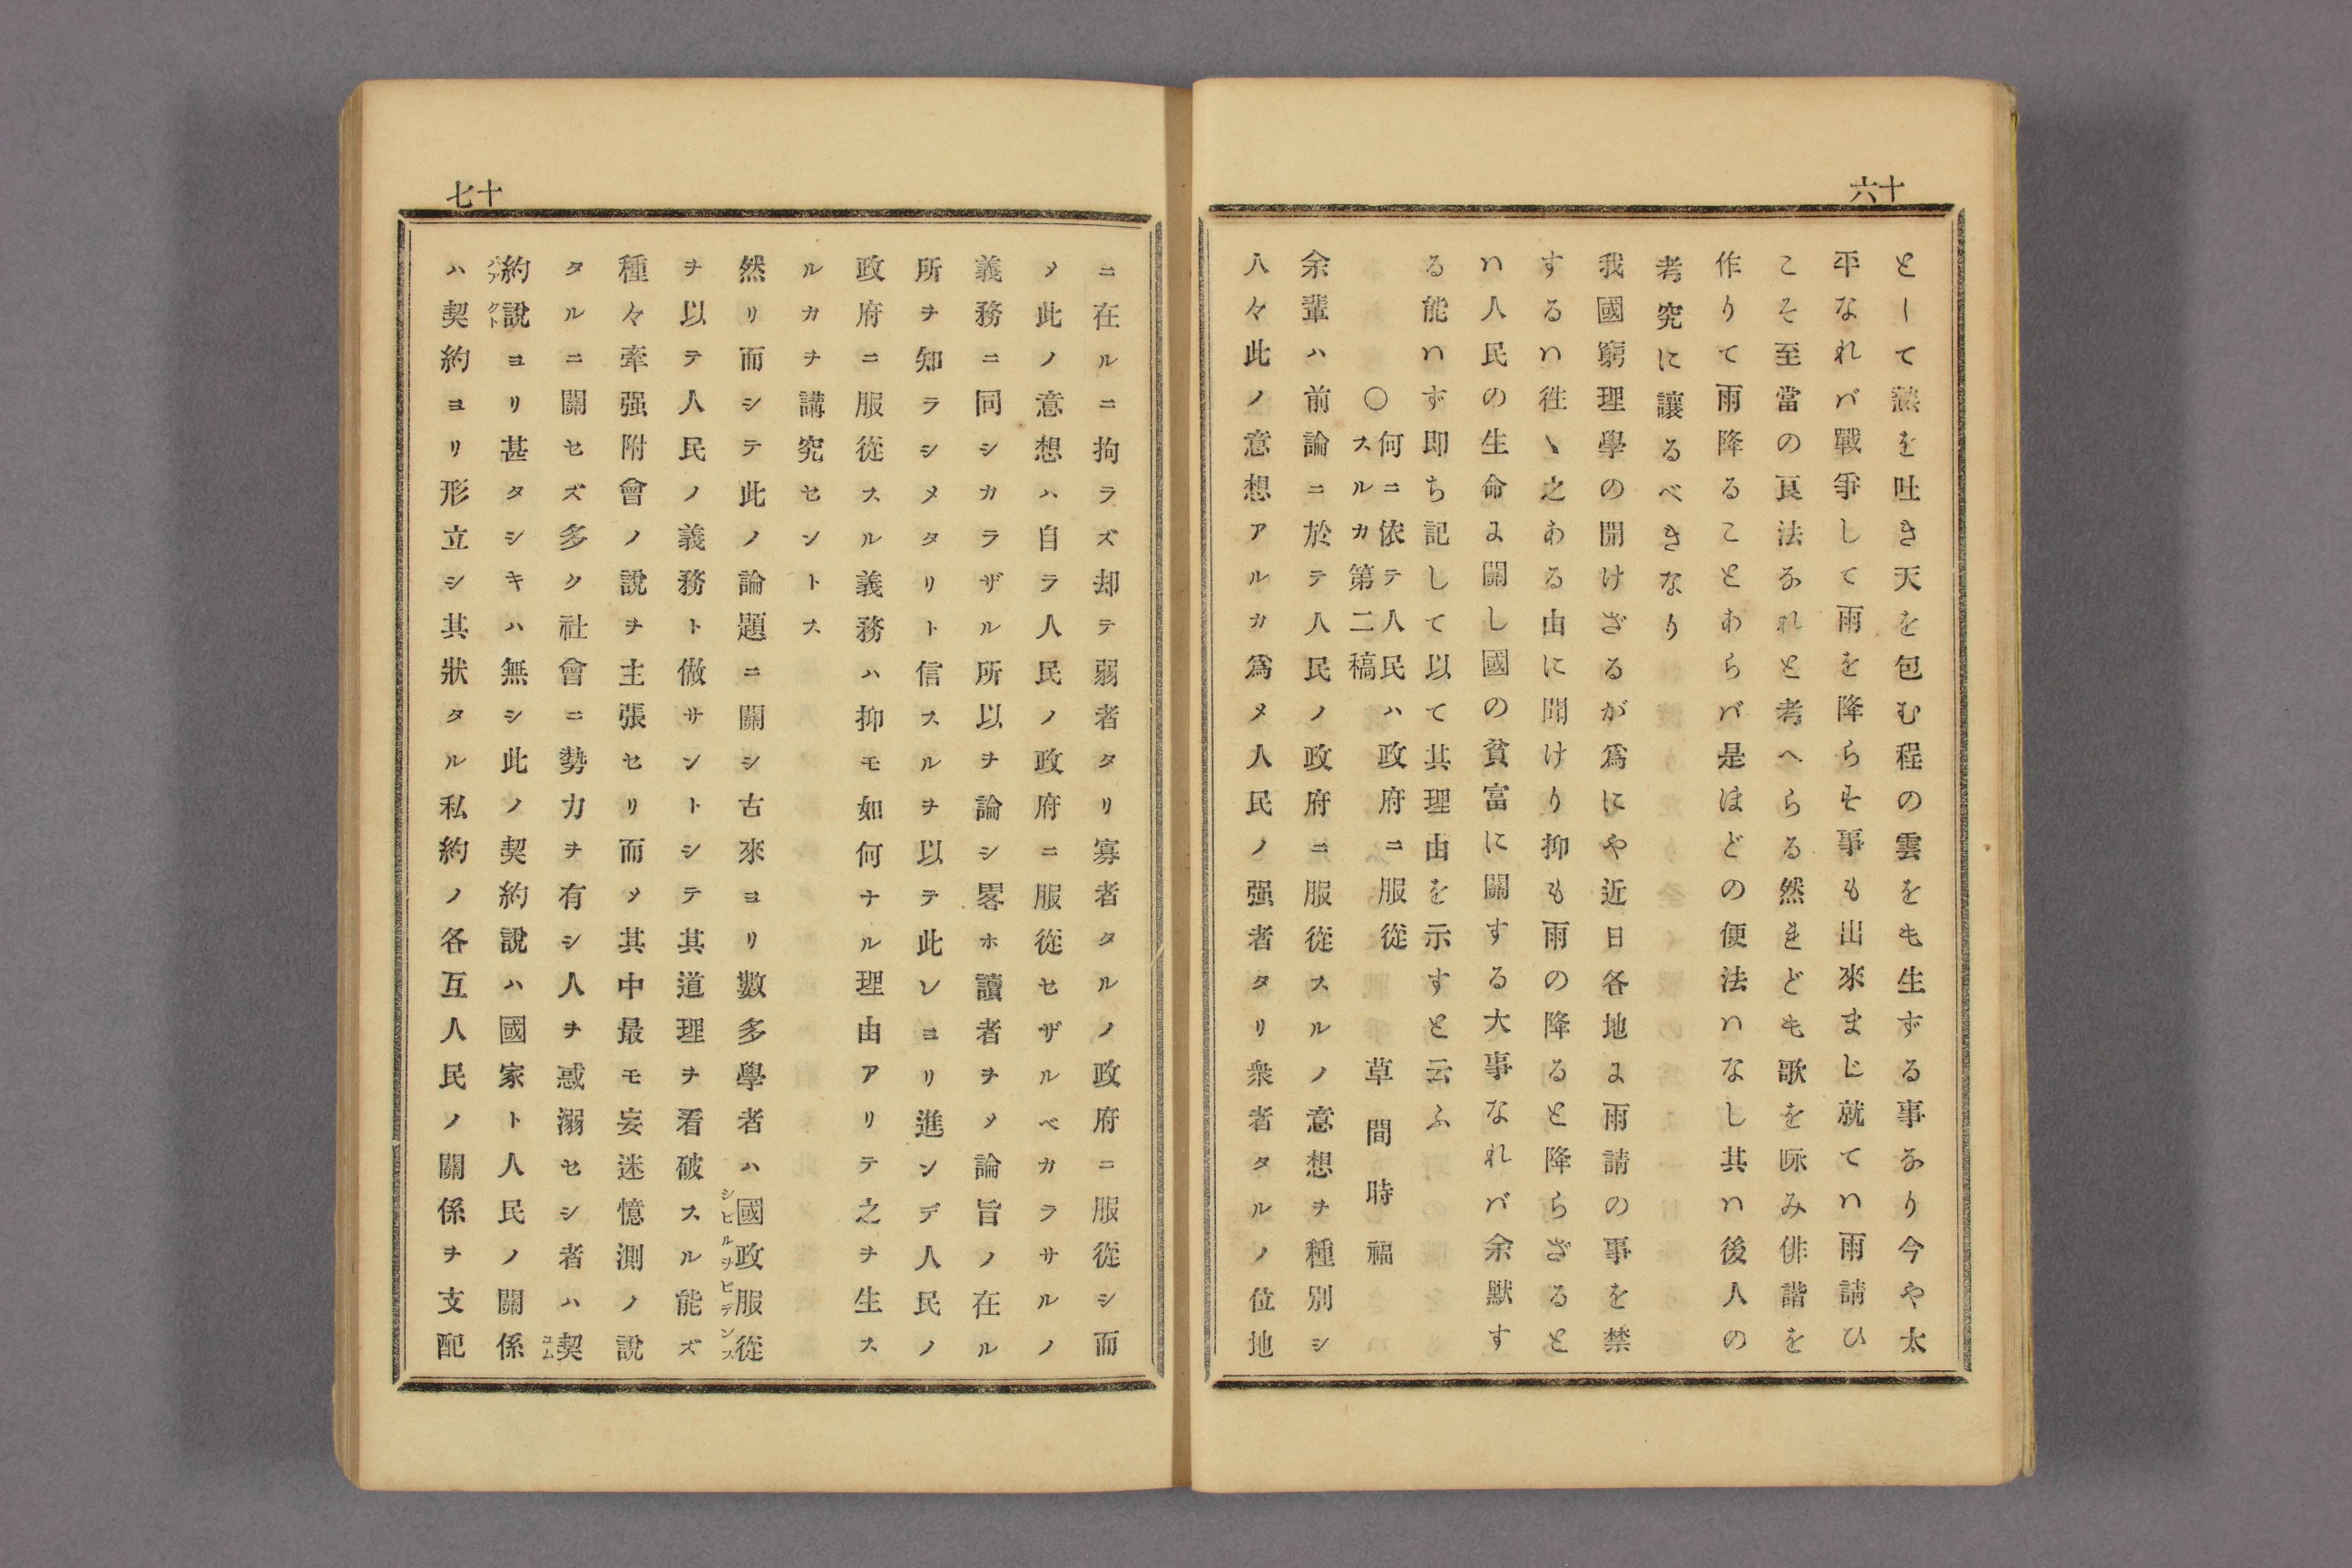 十六
として燄を吐き天を包む程の雲をも生ずる事なり今や太
平なれバ戰爭して雨を降らそ事も出來まじ就てハ雨請ひ
こそ至當の良法なれと考へらる然れども歌を咏み俳諧を
作りて雨降ることあらバ是ほどの便法ハなし其ハ後人の
考究に讓るべきなり
我國窮理學の開けざるが爲にや近日各地よ雨請の事を禁
するハ徃〻之ある由に聞けり抑も雨の降ると降らざると
ハ人民の生命よ關し國の貧富に關する大事なれバ余默す
る能ハず即ち記して以て其理由を示すと云ふ
〇何ニ依テ人民ハ政府ニ服從
スルカ第二稿 草間時福
余輩ハ前論ニ於テ人民ノ政府ニ服從スルノ意想ヲ種別シ
人々此ノ意想アルカ爲メ人民ノ强者タリ衆者タルノ位地
十七
ニ在ルニ拘ラズ却テ弱者タリ寡者タルノ政府ニ服從シ而
メ此ノ意想ハ自ラ人民ノ政府ニ服從セザルベカラサルノ
義務ニ同シカラザル所以ヲ論シ畧ホ讀者ヲメ論旨ノ在ル
所ヲ知ラシメタリト信スルヲ以テ此レヨリ進ンデ人民ノ
政府ニ服從スル義務ハ抑モ如何ナル理由アリテ之ヲ生ス
ルカヲ講究セントス
然リ而シテ此ノ論題ニ關シ古來ヨリ數多學者ハ國政服從
シビルヲビデンス
ヲ以テ人民ノ義務ト倣サントシテ其道理ヲ看破スル能ズ
種々牽强附會ノ說ヲ主張セリ而メ其中最モ妄迷憶測ノ說
タルニ關セズ多ク社會ニ勢力ヲ有シ人ヲ惑溺セシ者ハ契
コム
約說ヨリ甚タシキハ無シ此ノ契約說ハ國家ト人民ノ關係
パアクト
ハ契約ヨリ形立シ其狀タル私約ノ各互人民ノ關係ヲ支配